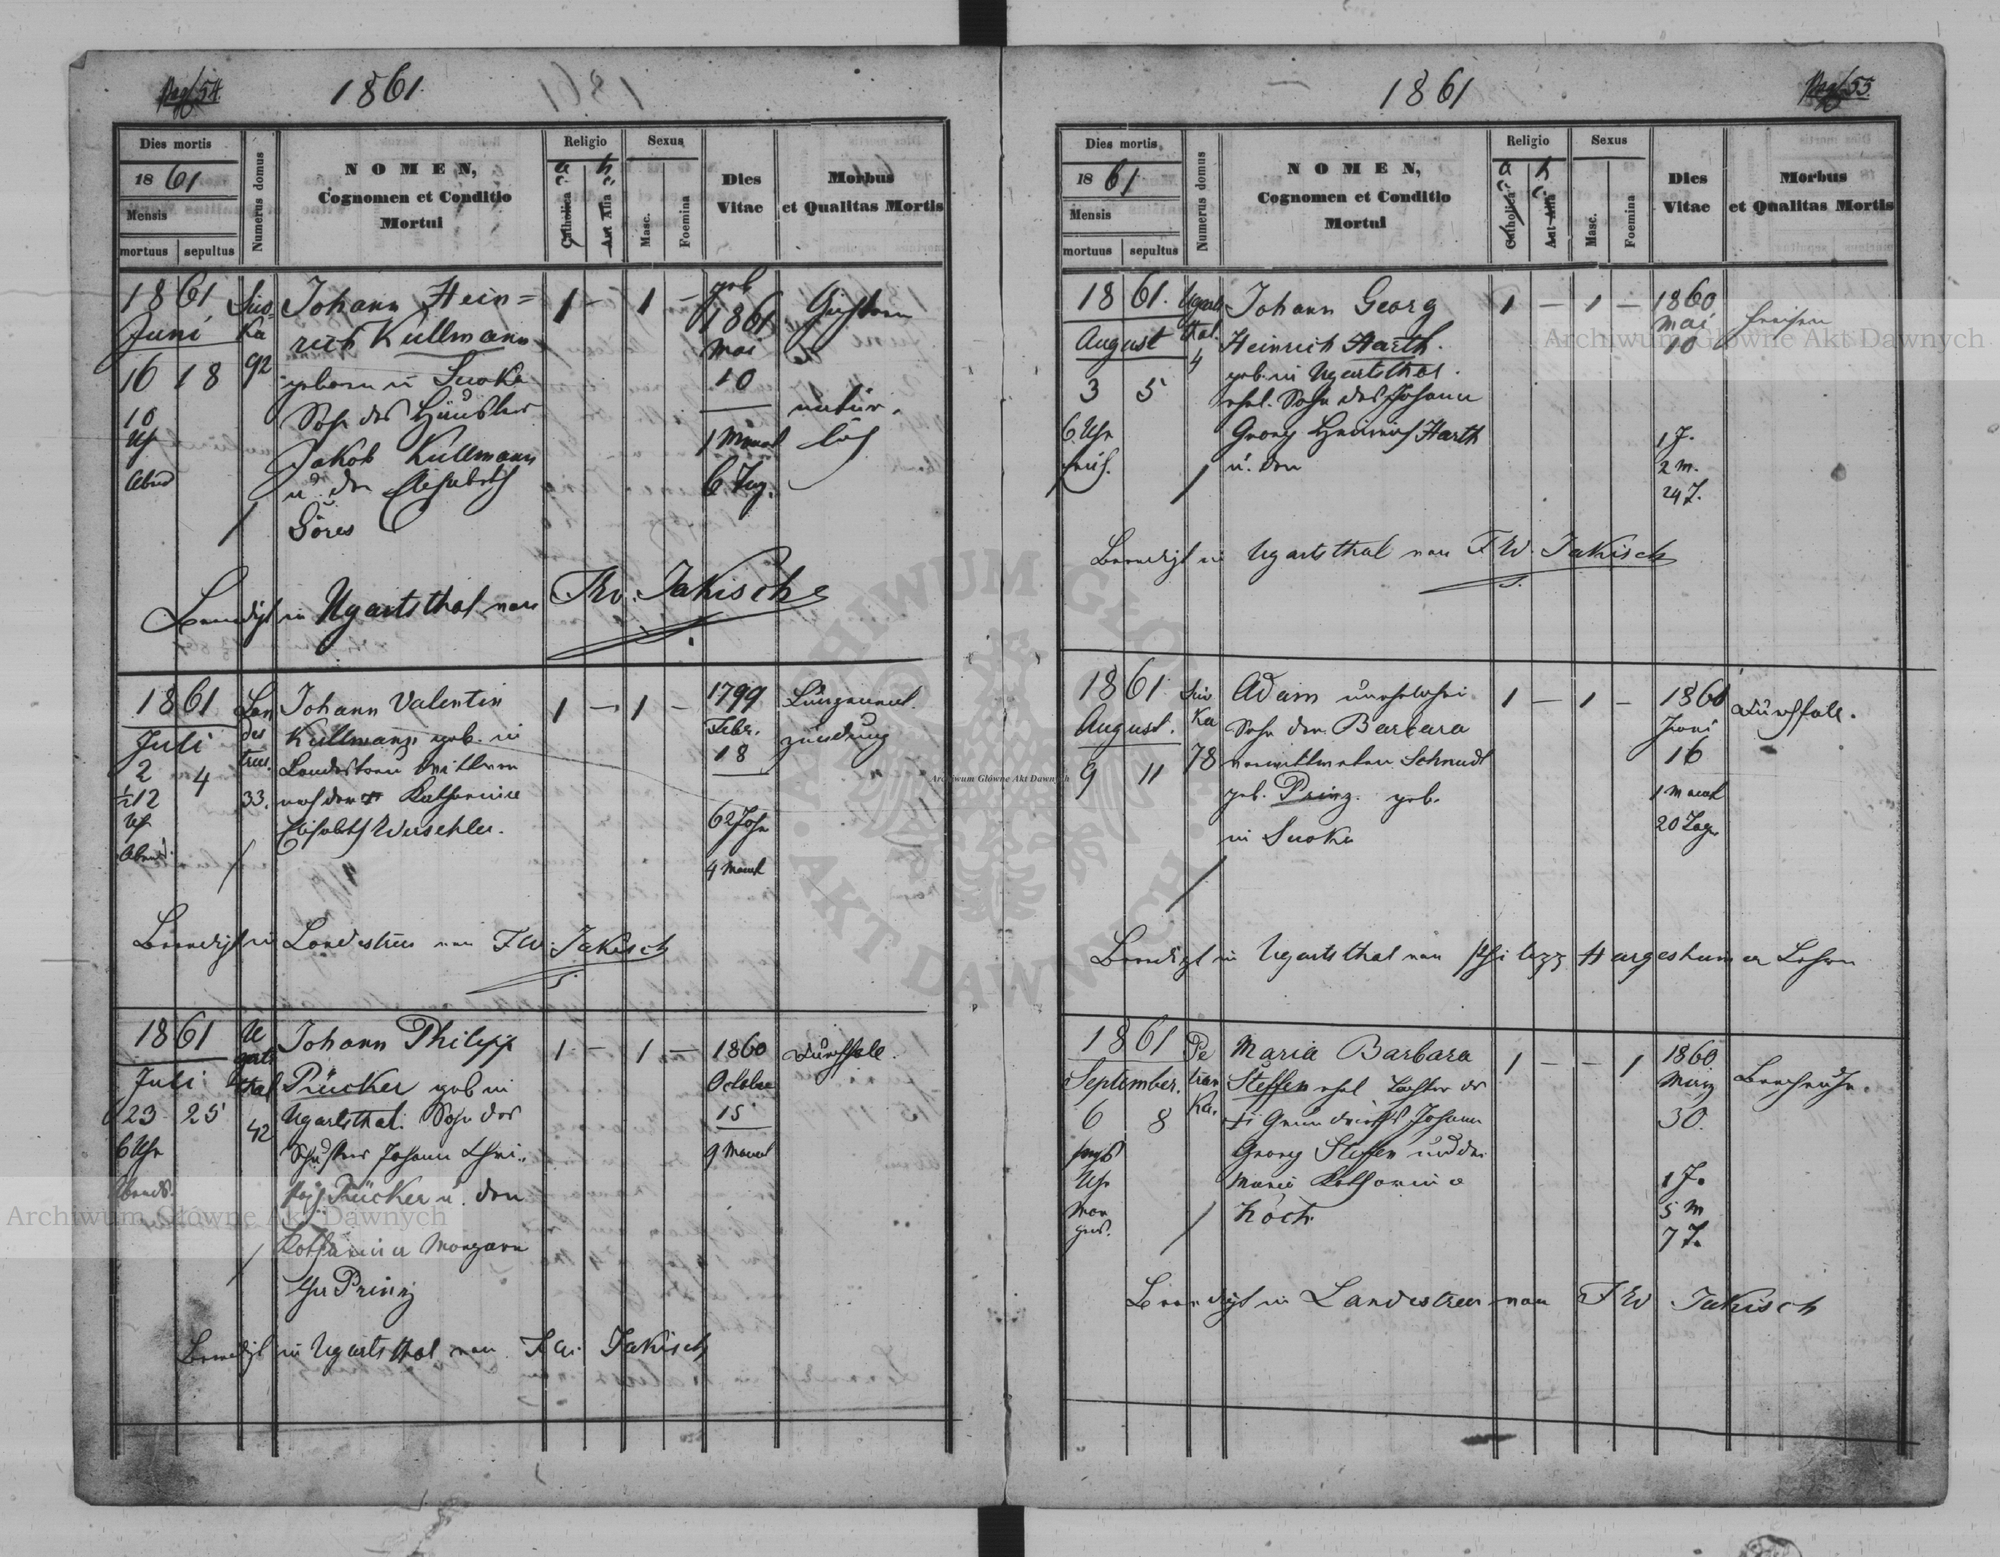 Pag. 54.
1861.
Dies mortis
1861
Mensis
mortuus
sepultus
Numerus domus
NOMEN,
Cognomen et Conditio
Mortui
Religio
Catholica
Aut Alia
Sexus
Masc.
Foemina
Dies
Vitae
Morbus
et Qualitas Mortis
1861
Juni
16 18
10
Uhr
Abend
Suo
ka
92
Johann Hein=
rich Kullmann
geboren in Suoka
Sohn des Häuslers
Jakob Kullmann
u. der Elisabeth
Göres
1 — 1 —
geb
1861
Mai
10
1 Monat
6 Tag.
natür.
lich
Beerdigt in Ugartsthal von Fr. W. Jakisch
1861
Juli
2 4
½12
Uhr
Abend
Lan
des
treu.
33.
Johann Valentin
Kullmann, geb. in
Landestreu Wittwer
nach der † Katharina
Elisabeth
1 — 1 —
1799
Febr.
18
62 Jahr
4 Monat
Lungenent.
zündung
Beerdigt in Landestreu von F W. Jakisch
1861
Juli
23 25
6 Uhr
Abends.
U
garts
thal
42
Johann Philipp
Prücker geb in
Ugartsthal. Sohn des
Schusters Johann Chri..
Prücker u. der
Katharina
Prinz
1 — 1 —
1860
October
15
9 Monat
Durchfall.
Beerdigt in Ugartsthal von F. W. Jakisch
Pag. 55.
1861
Dies mortis
1861
Mensis
mortuus
sepultus
Numerus domus
NOMEN,
Cognomen et Conditio
Mortui
Religio
Catholica
Aut Alia
Sexus
Masc.
Foemina
Dies
Vitae
Morbus
et Qualitas Mortis
1861.
August
3 5
6 Uhr
früh.
Ugarts
thal.
4
Johann Georg
Heinrich Harth.
geb. in Ugartsthal.
ehel. Sohn des Johann
Georg Heinrich Harth
u. der
1 — 1 —
1860
Mai
10
1 J.
2 M.
24 T.
Fraisen
Beerdigt in Ugartsthal von F W. Jakisch
1861
August.
9 11
Suo
ka
78
Adam unehelicher
Sohn der Barbara
verwittweten Schmidt
geb. Prinz. geb.
in Suoka
1 — 1 —
1861
Juni
16
1 Monat
20 Tage
Durchfall.
Beerdigt in Ugartsthal von Philipp Hargesheimer Lehrer
1861
September.
6 8
sechs
Uhr
Mor
gens.
Pe
tran
ka.
Maria Barbara
Steffen ehel. Tochter des
† Grundwirths Johann
Georg Steffen und der
Maria Katharina
Koch.
1 — — 1
1860
März
30.
1 J.
5 M
7 T.
Beerdigt in Landestreu von F W Jakisch
Archiwum Główne Akt Dawnych
Archiwum Główne Akt Dawnych
Archiwum Główne Akt Dawnych
ARCHIWUM GŁÓWNE AKT DAWNYCH